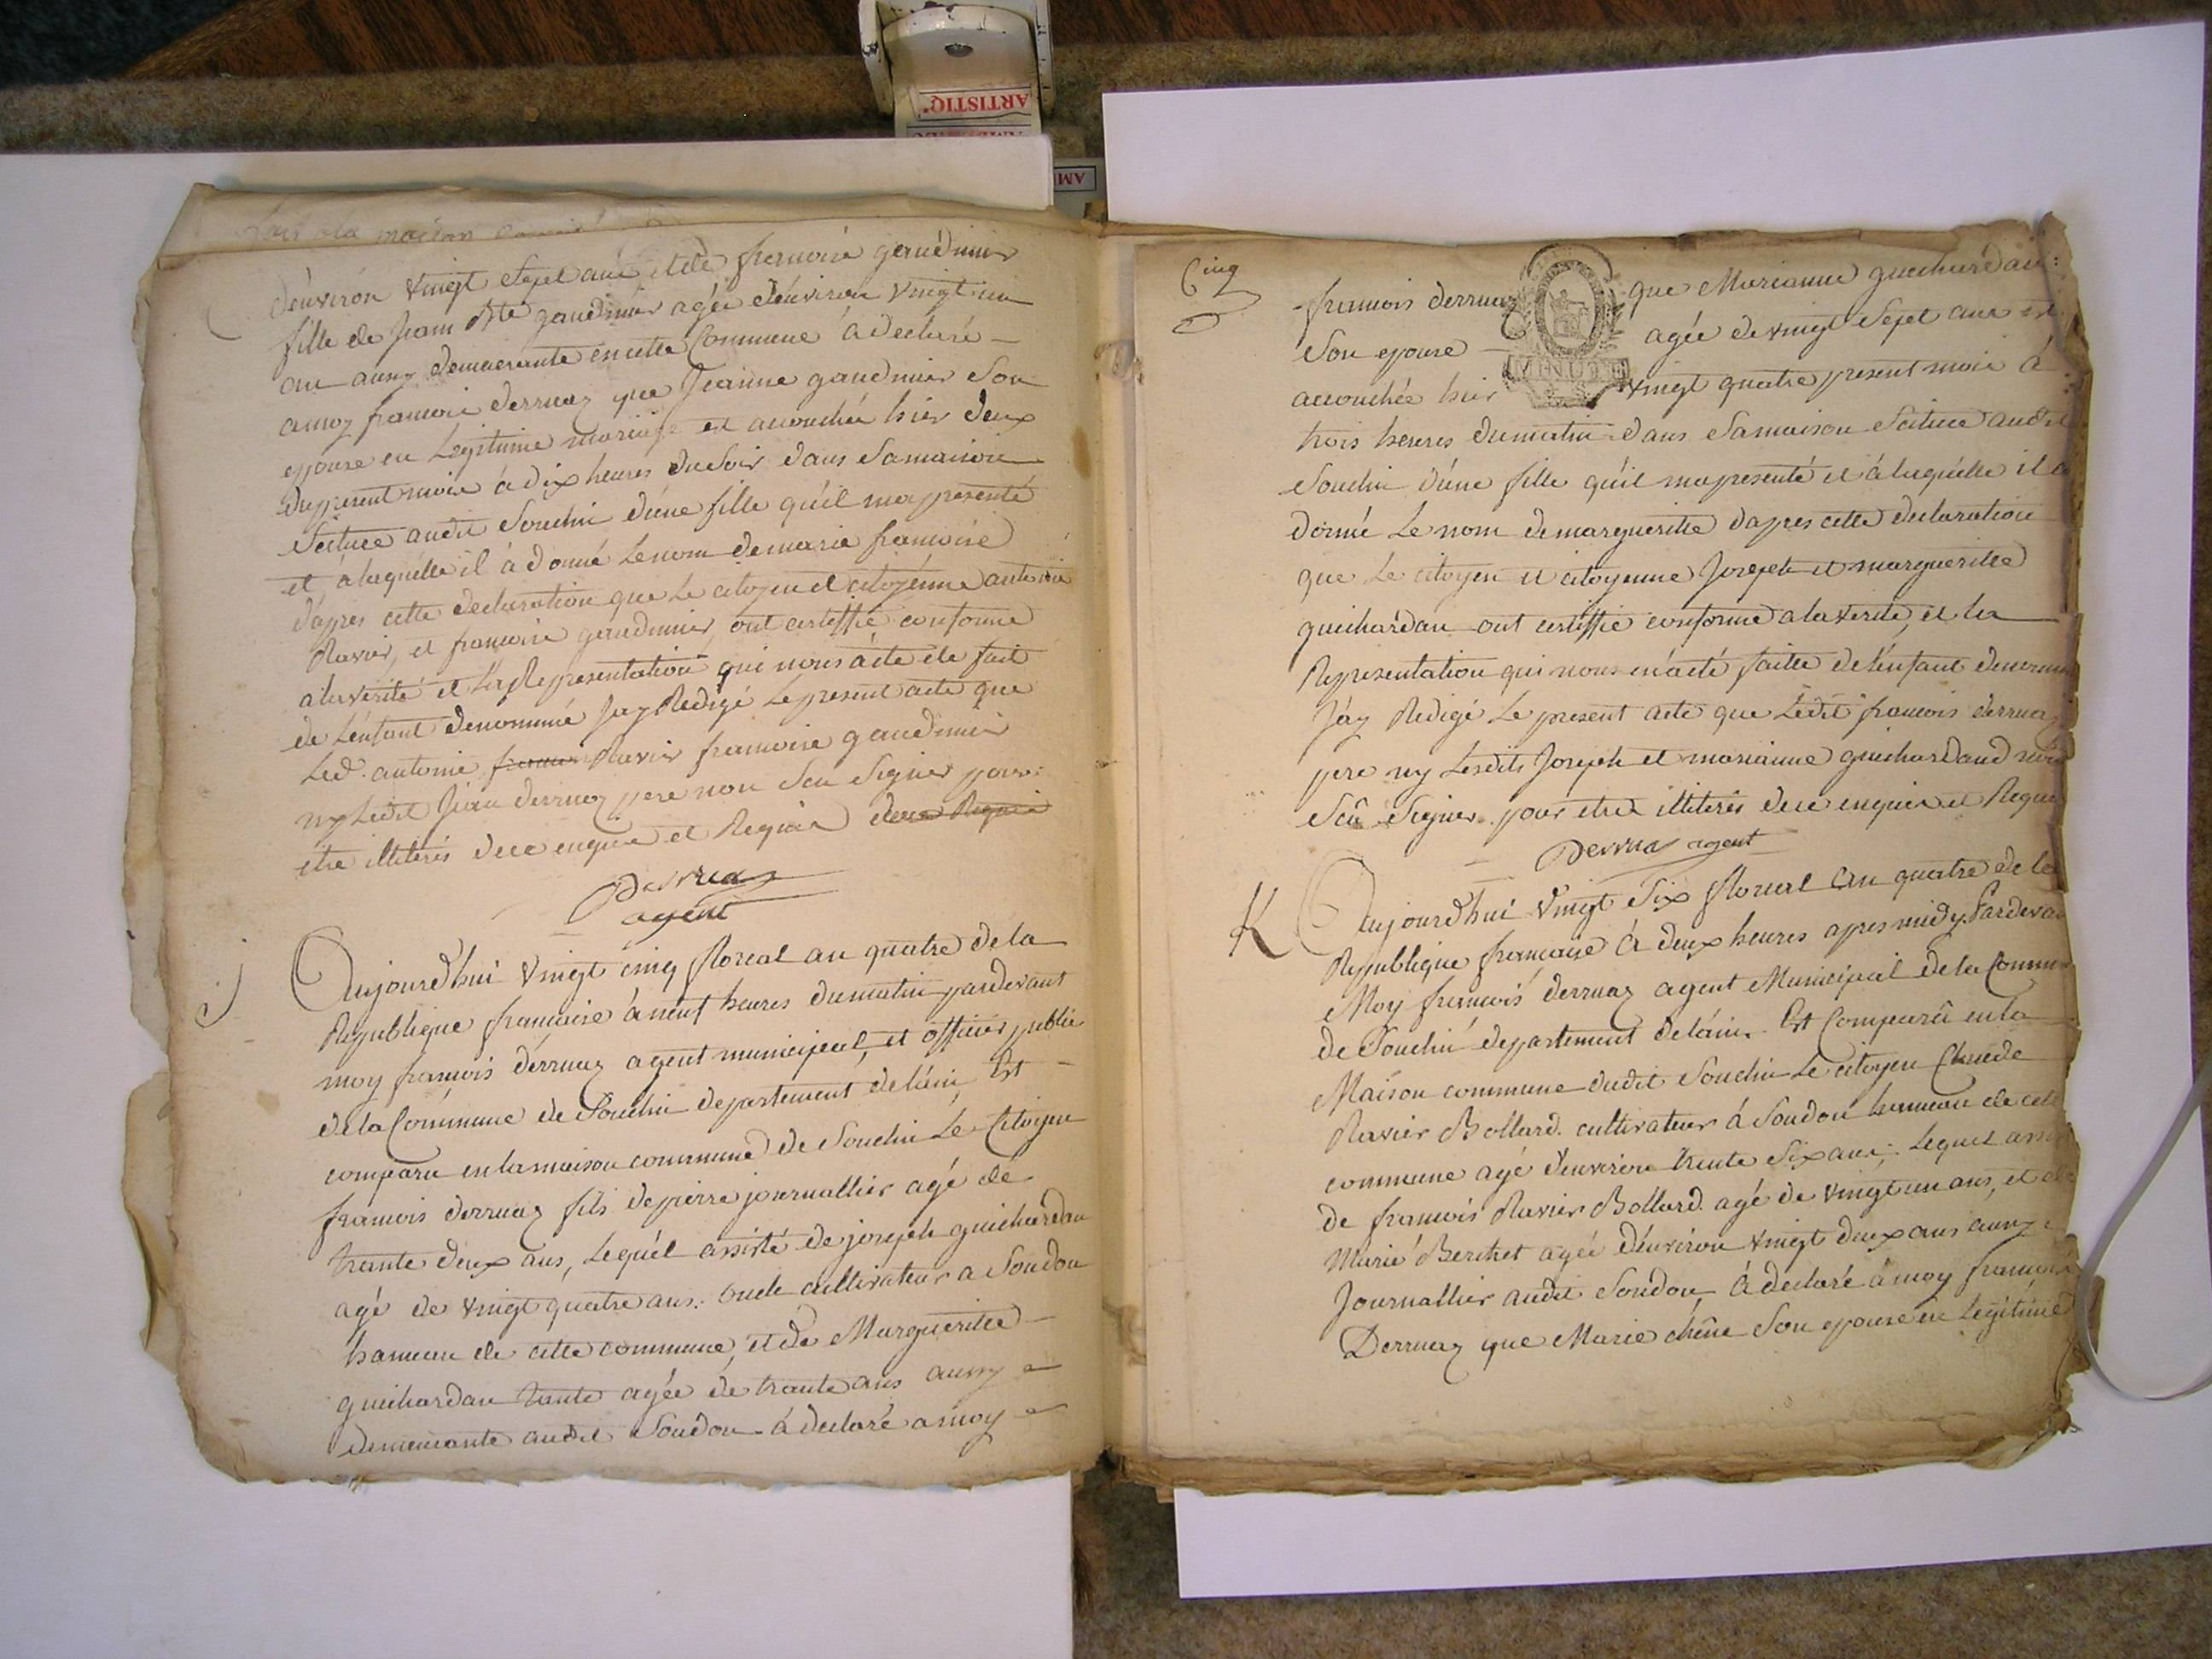 ARTISTIQ'
AM
fait a la maison
d'environ vingt Sept ans et de francoise gaudinier
fille de Jean Bte gaudinier agée d'environ vingt un
an aussy demeurante en cette Commune à declaré
a moy francois derruaz que Jeanne gaudinier Son
epouse en Legitime mariage et accouchée hier deux
du present mois à dix heures du Soir dans Sa maison
Scituee audit Souclin d'une fille qu'il ma presenté
et à laquélle il à donné Le nom de marie francoise
d'apres cette declaration que Le citoyen et citoyénne antoine
Ravier, et francoise gaudinier ont certiffié conforme
a la verité et La Representation qui nous à été de fait
de L'enfant denommé Jay Redigé Le present acte que
Led. antoine francois Ravier francoise gaudinier
ny Ledit Jean derruaz pere non Seu Signer pour
etre illiterés de ce enquis et Requis de ce Requis
Derruaz
agent
j
Aujourdhui vingt cinq floreal an quatre de la
Republique francaise à neuf heures du matin pardevant
moy francois dérruaz agent municipal, et officier public
de la Commune de Souclin departement de láin, Est
comparu en la maison commune de Souclin Le Citoyen
francois derruaz fils de pierre journallier agé de
trante deux ans, Lequél assisté de joseph guichardan
agé de vingt quatre ans. oncle cultivateur a Soudon
hameau de cette commune, et de Margueritte
guichardan tante agée de trante ans aussy
demeurante audit Soudon à declaré a moy
Cinq
francois derruaz que Marianne guichardan
Son epouse agée de vingt Sept ans est
accouchée hier vingt quatre present mois à
MINUTE
trois heures du matin dans Sa maison Scituee audit
Souclin d'une fille qu'il ma presenté et à laquélle il a
donné Le nom de margueritte dapres cette declaration
que Le citoyen et citoyenne Joseph et margueritte
guichardan ont certiffié conforme a la verité, et la
Representation qui nous en'a été faitte de L'enfant denommé
J'ay Redigé Le present acte que Ledit francois derruaz
pere ny Lesdits Joseph et marianne guichardand
Seû Signer pour etre illiterés de ce enquis et Requis
Derruaz agent
K
Aujourdhui vingt Six floreal an quatre de la
Republique francaise à deux heures apres midy Pardevant
Moy francois derruaz agent Municipal de la Commune
de Souclin departement de láin. Est Comparû en la
Maison commune dudit Souclin Le citoyen Claude
Ravier Bollard. cultivateur à Soudon hameau de cette
commune agé d'environ trente Six ans, Lequel assisté
de francois Ravier Bollard. agé de vingt un ans, et de
Marie Berthet agée d'environ vingt deux ans aussy
Journallier audit Soudon, à declaré à moy francois
Derruaz que Marie chêne Son epouse en Legitime